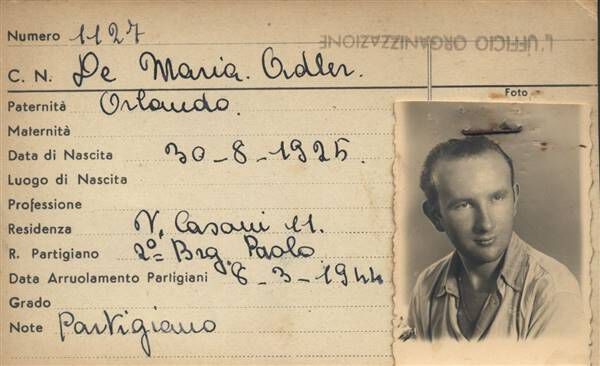 Numero 1127
L'UFFICIO ORGANIZZAZIONE
C. N. De Maria Adler.
Foto
Paternità Orlando.
Maternità
Data di Nascita 30-8-1925.
Luogo di Nascita
Professione
Residenza V. Casoni 11.
R. Partigiano 2º= Brg. Paolo
Data Arruolamento Partigiani 8-3-1944
Grado
Note Partigiano